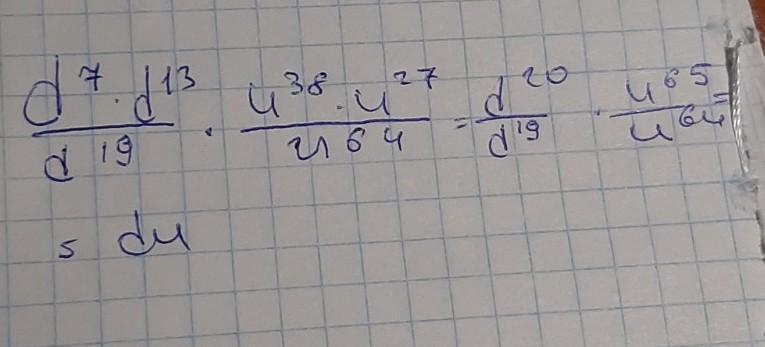 d⁷·d¹³/d¹⁹ · u³⁸·u²⁷/u⁶⁴ = d²⁰/d¹⁹ · u⁶⁵/u⁶⁴ =
= du